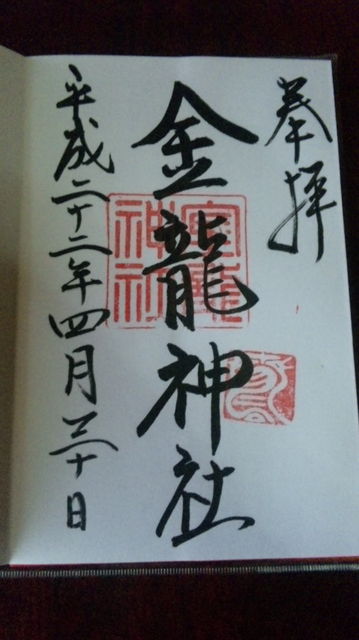 奉拝
金龍神社
平成二十二年四月三十日